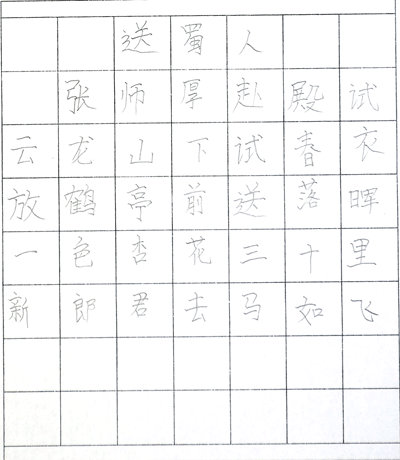 送蜀人
张师厚赴殿试
云龙山下试春衣
放鹤亭前送落晖
一色杏花三十里
新郎君去马如飞